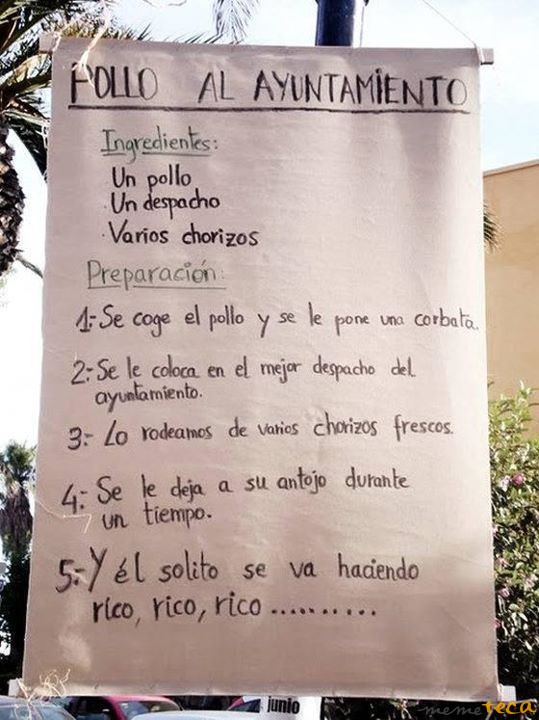 POLLO AL AYUNTAMIENTO
Ingredientes:
Un pollo
Un despacho
Varios chorizos
Preparación:
1:- Se coge el pollo y se le pone una corbata.
2:- Se le coloca en el mejor despacho del
ayuntamiento.
3:- Lo rodeamos de varios chorizos frescos.
4:- Se le deja a su antojo durante
un tiempo.
5:- Y él solito se va haciendo
rico, rico, rico ..........
junio
memeteca